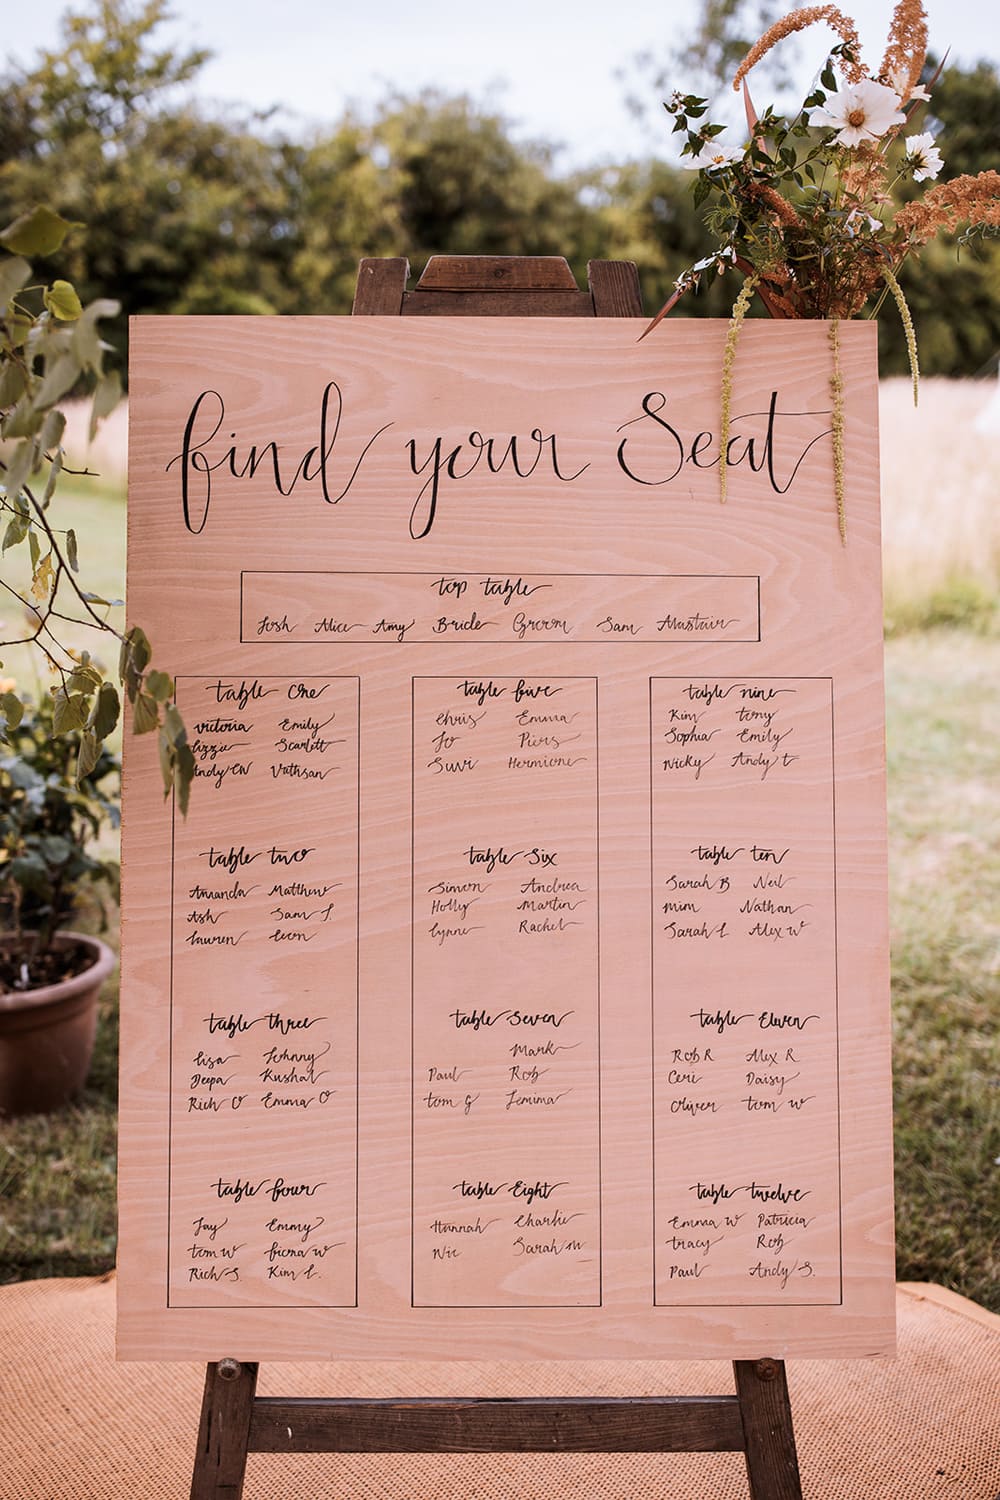 find your Seat
top table
Josh Alice Amy Bride Groom Sam Alastair
table one
victoria Emily
Lizzie Scarlett
Andy CW Vathsan
table two
Amanda Matthew
Ash Sam J.
Lauren Leon
table three
Lisa Johnny
Deepa Kushal
Rich O Emma O
table four
Jay Emmy
tom W fiona W
Rich S. Kim L.
table five
Chris Emma
Jo Piers
Suvi Hermione
table Six
Simon Andrea
Holly Martin
Lynne Rachel
table Seven
Mark
Paul Rob
tom G Jemima
table Eight
Hannah Charlie
Nic Sarah M
table nine
Kim tony
Sophia Emily
Nicky Andy t
table ten
Sarah B Neil
Mim Nathan
Sarah L Alex W
table Eleven
Rob R Alex R
Ceri Daisy
Oliver tom W
table twelve
Emma W Patricia
tracy Rob
Paul Andy S.